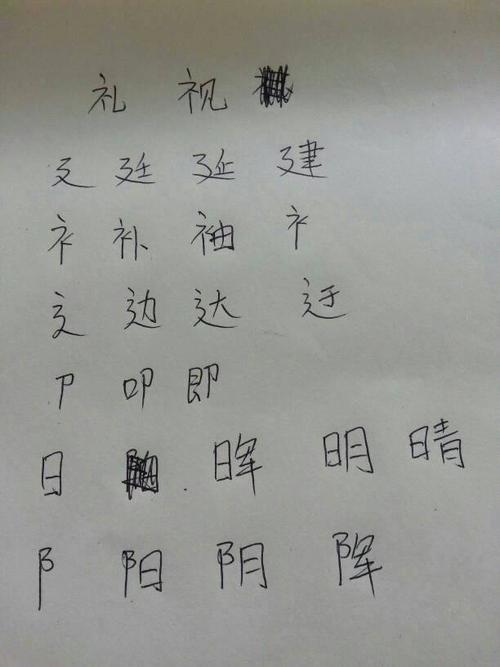 礼 祝
廴 廷 延 建
衤 补 袖 衤
辶 边 达 迂
卩 叩 即
日 晖 明 晴
阝 阳 阴 阵